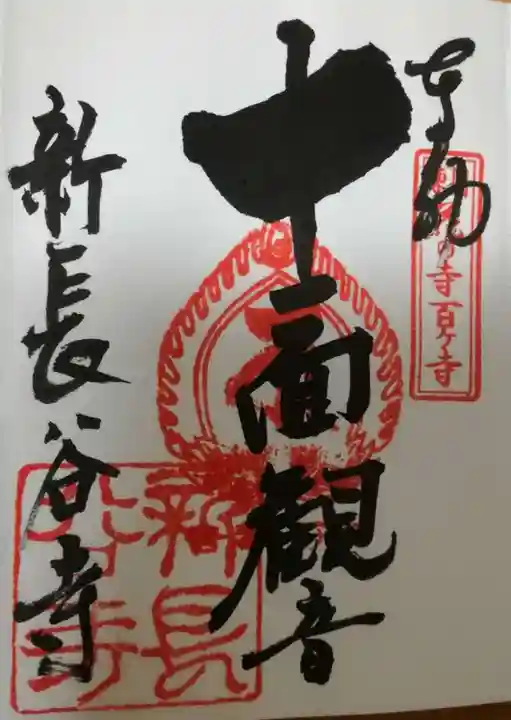 奉拝
の寺百ヶ寺
十一面観音
新長谷寺
新長谷寺